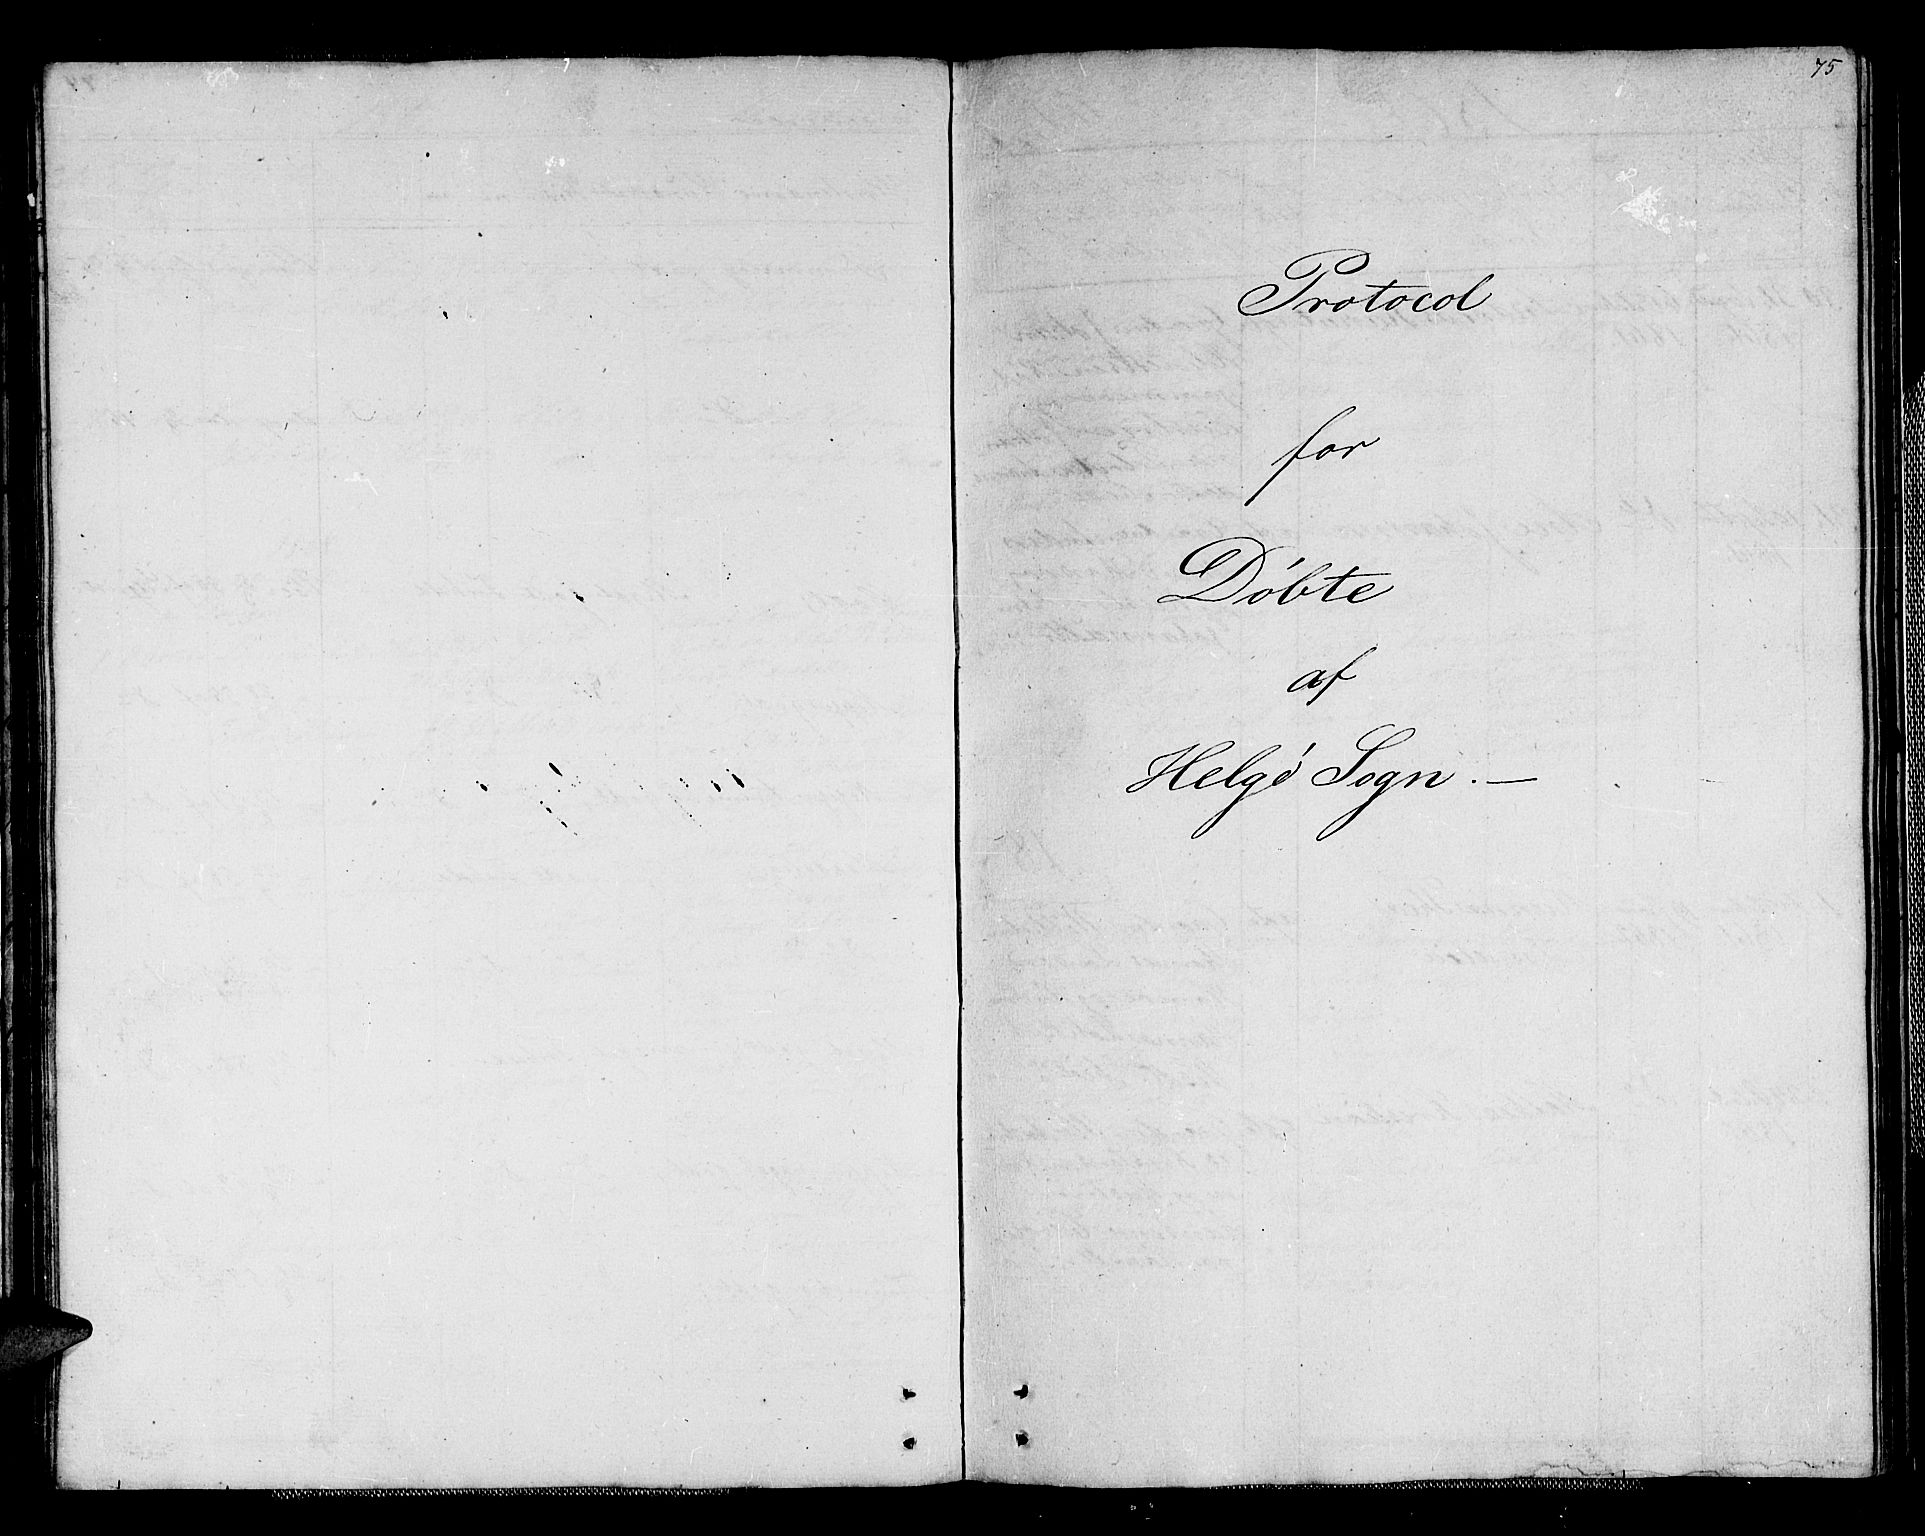 75
Protocol
for
Döbte
af
Helgö Sogn. —